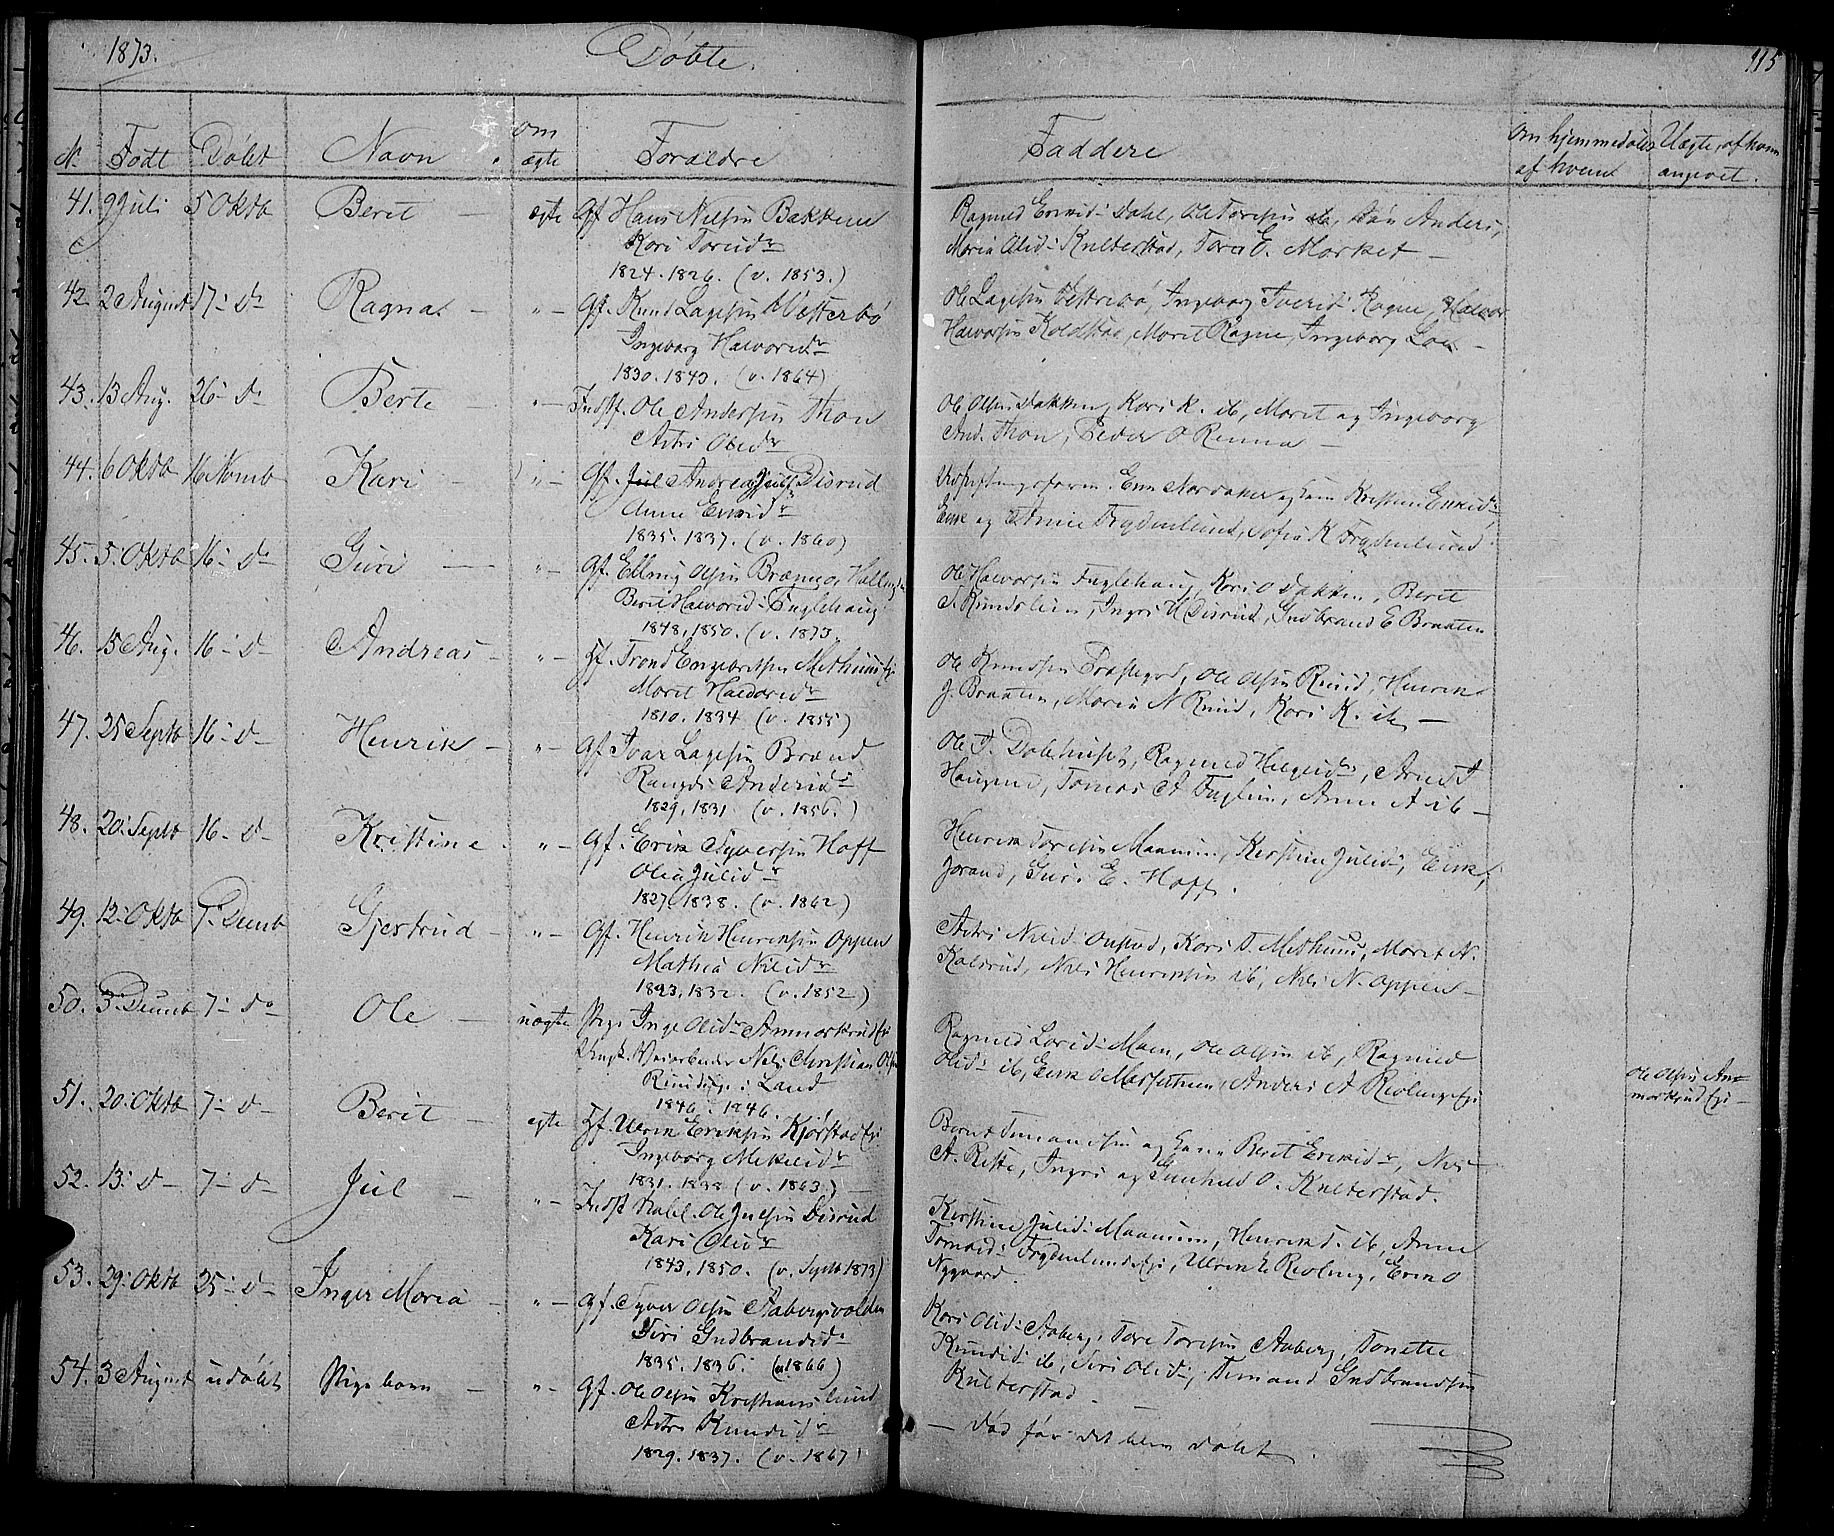 1873. Døbte. 115
N. Født Døbt Navn om ægte Forældre Faddere Om hjemmedøbt af hvem Uægte, af hvem angivet.
41. 9 Juli 5 Oktb Berit ægte Gf. Hans Nilsen Bakken
Kari Toresdr
1824. 1826. (v. 1853.)
Ragnild Eriksd. Dahl, Ole Toresen ib, Anders,
Maria Olsd. Kulterstad, Tore E. Morket
42. 2 August 17 - do Ragna Gf. Knud Lagesen Westerbø
Ingeborg Halvorsdr
1830. 1843. (v. 1864)
Ole Lagesen Vestrebø, Ingeborg Iversd. Ragne, Halvor
Halvorsen Koldstad, Marit Ragne, Ingeborg
43. 13 Aug. 26 - do Berte Indst. Ole Andersen Thon
Astri Olsdr
Ole Olsen Bakken, Kari K. ib, Marit og Ingeborg
And. Thon, Peder O Renna
44. 6 Oktb 16 Novmb Kari Gf. Andreas Juls. Disrud
Anne Eriksdr
1835. 1837. (v. 1860)
Erik Nordaker og Kristine Eriksdr,
Erik og Anne Frydenlund, Sofia K Frydenlund.
45. 5. Oktb 16 - do Guri Gf. Elling Olsen Brænna, Hallingd.
Berit Halvorsd. Fuglehaug
1848, 1850. (v. 1873.
Ole Halvorsen Fuglehaug, Kari O Bakken, Berit
Ingri H Disrud, Gudbrand E Braaten.
46. 15 Aug. 16 - d - Andreas Gf. Trond Engebretsen Methums Ej.
Marit Haldorsdr
1810. 1834. (v. 1855)
Ole Knudsen, Ole Olsen Ruud, Henrik
J. Braaten, Maria N Ruud, Kari K. ib
47. 25 Septb 16 - d - Henrik Gf. Ivar Lagesen Brænd
Rangdi Andersdr
1829, 1831. (v. 1856.)
Ole T. Dokhuset, Ragnild Helgesdr, Arne T
Haugerud, Tomas A Fuglien, Anne A ib
48. 20. Septb 16 - d - Kristine Gf. Erik Syversen Hoff
Olea Julsdr
1827, 1838. (v. 1862)
Henrik Toresen Maanum, Kirstine Julsd., Erik,
Jorand, Guri E. Hoff.
49. 12. Oktb 7. Decmb Gjertrud Gf. Henrik Henriksen Oppen
Mathea Nilsdr
1823, 1832. (v. 1852)
Astri Nilsd. Onstad, Kari T. Methum, Marit N.
Kalsrud, Nils Henriksen ib, Nils N. Oppen
50. 3. Decmb 7 - do Ole uægte Pige Inge Olsdr Ammorkrud Ej
Ungk. Veiarbeider Nils Christian Olsen
Ruuds Ej. i Land
1846. 1846.
Ragnild Larsd. Moen, Ole Olsen ib, Ragnild
Olsd. ib, Erik O, Anders A Revling Ej
Ole Olsen Am-
morkrud Ej.
51. 20. Oktb 7 - d - Berit ægte Gf. Ulrik Eriksen Kjørstad Ej
Ingeborg Mikkelsdr
1831. 1838 (v. 1863)
Bernt Timandsen og Berit Eriksdr, Nils
A. Riste, Ingri og Gunhild O. Kulterstad.
52. 13. d - 7 - d - Jul Indst. Ole Julsen Disrud
Kari Olsdr
1843, 1850. (v. Septb 1873)
Kirstine Julsd. Maanum, Henrik T. ib, Anne
Frydenlunds Ej, Ulrik E. Revling, Erik O
Nygaard.
53. 29. Oktb 25 - d - Inger Maria Gf. Syver Olsen Aabergsvolden
Siri Gudbrandsd.
1835. 1836. (v 1866)
Kari Olsd. Aaberg, Tore Toresen Aaberg, Tonette
Knudsd. ib, Siri Olsd., Timand Gudbrandsen
Kulterstad
54. 3 August udøbt Pigebarn Gf. Ole Olsen Kristianslund
Astri Knudsdr
1829. 1837. (v. 1867)
- Død før det blev døbt.